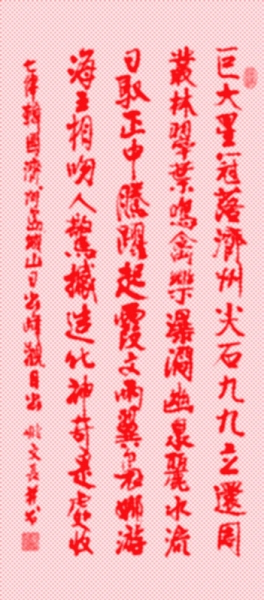 巨大星冠落济州尖石九九立还周
丛林翠叶鸣禽乐瀑涧幽泉丽水流
日取正中腾跃起霞文两翼尽娜游
海王相吻人惊撼造化神奇是处收
七律韩国济州岛城山日出峰观日出